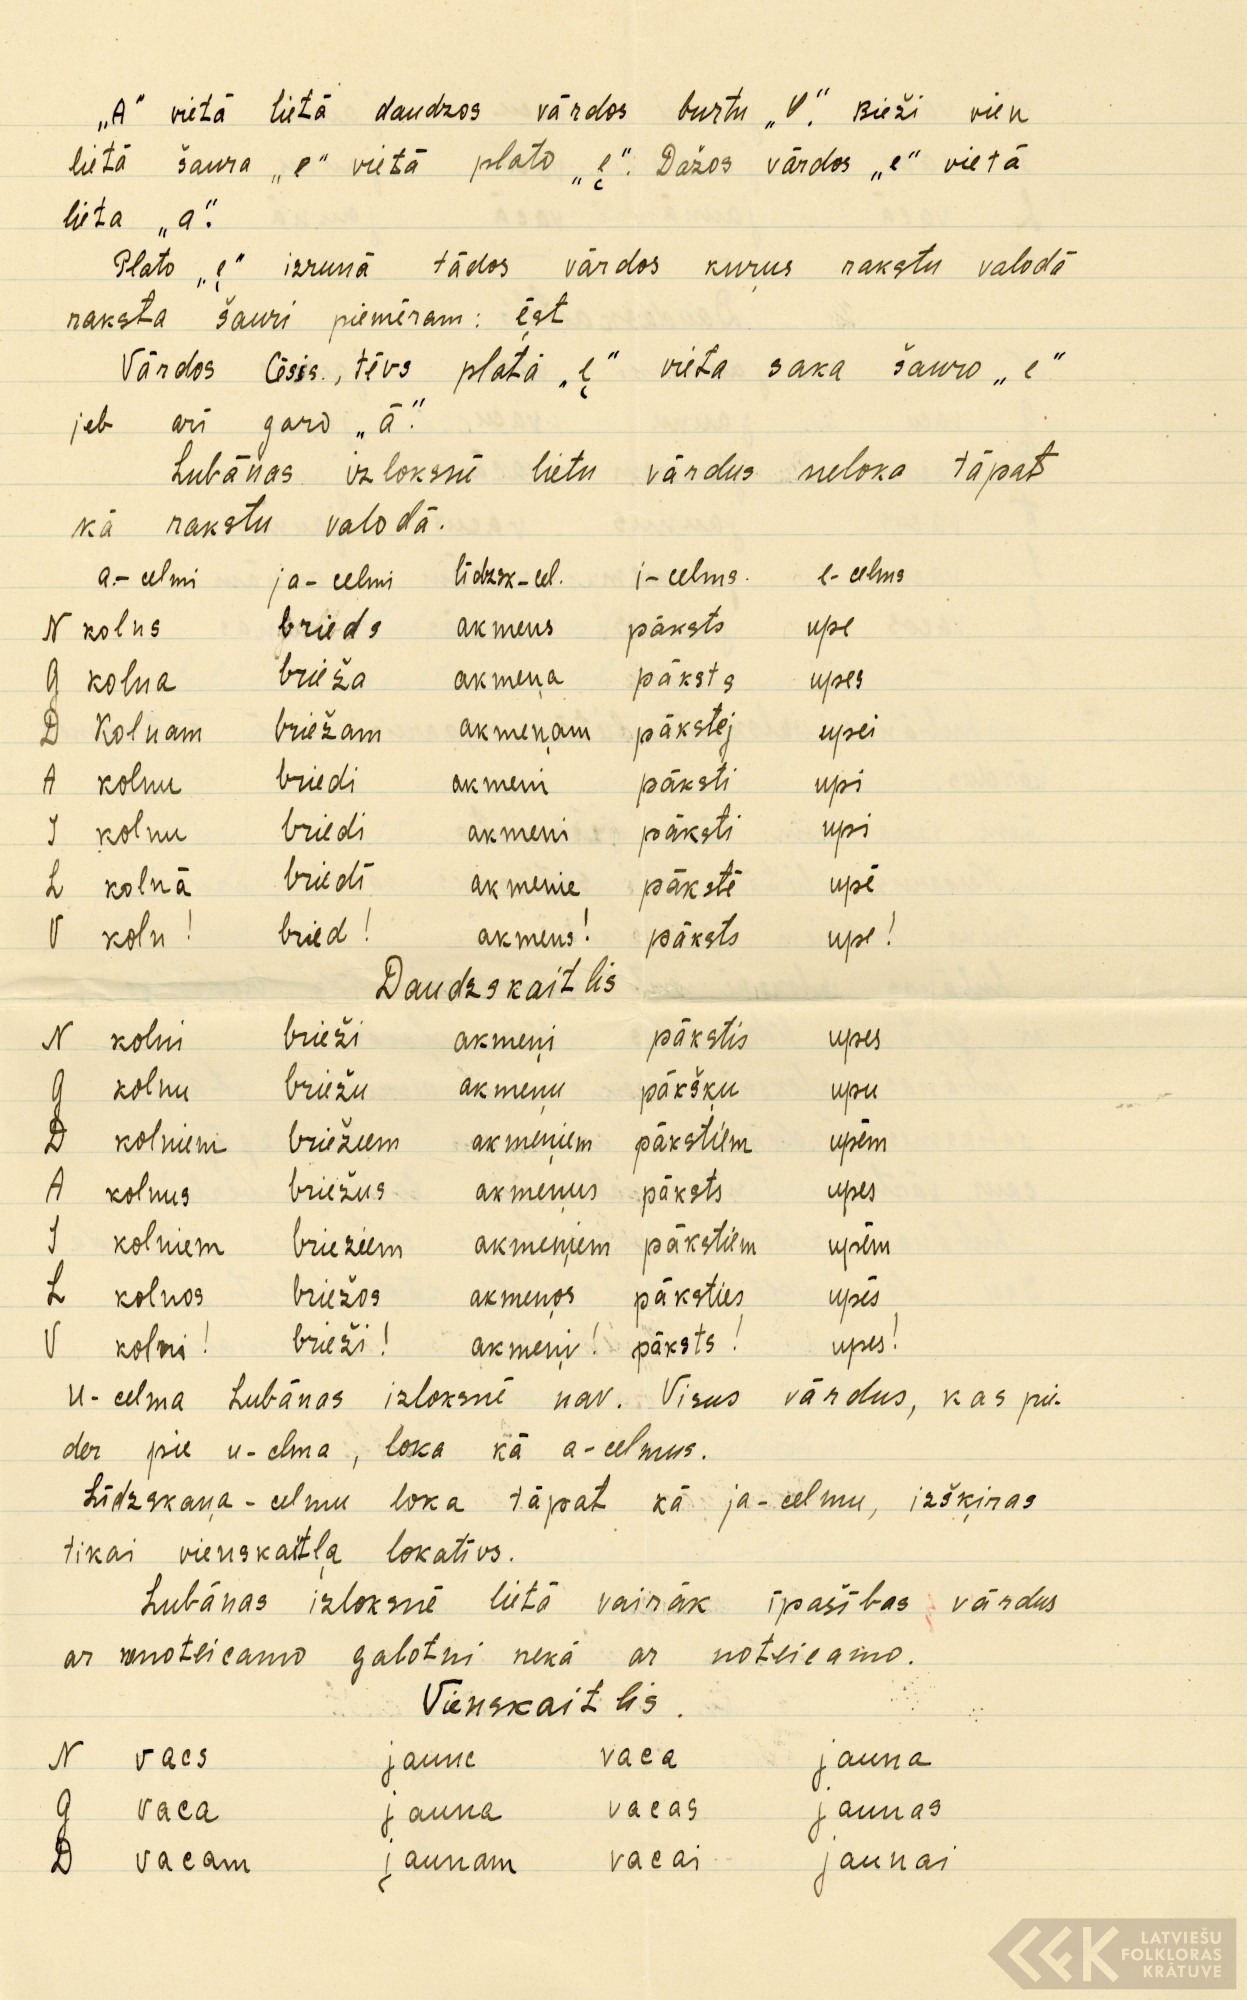 „A" vietā lietā daudzos vārdos burtu „O". Bieži vien
lietā šaura „e" vietā plato „ę". Dažos vārdos „e" vietā
lieta „a".
Plato „ę" izrunā tādos vārdos kuŗus rakstu valodā
raksta šauri piemēram: ēst
Vārdos Cēsis, tēvs platā „ę" vieta saka šauro „e"
jeb arī garo „ā".
Lubānas izloksnē lietu vārdus neloka tāpat
kā rakstu valodā.
a-celmi ja-celmi līdzsk-cel. i-celms. e-celms
N kolns brieds akmens pāksts upe
G kolna brieža akmeņa pāksts upes
D Kolnam briežam akmeņam pākstej upei
A kolnu briedi akmeni pāksti upi
I kolnu briedi akmeni pāksti upi
L kolnā briedī akmenie pākstē upē
V koln! bried! akmens! pāksts upe!
Daudzskaitlis
N kolni brieži akmeņi pākstis upes
G kolnu briežu akmeņu pākšķu upu
D kolniem briežiem akmeņiem pākstiem upēm
A kolnus briežus akmeņus pāksts upes
I kolniem briežiem akmeņiem pākstiem upēm
L kolnos briežos akmeņos pāksties upēs
V kolni! brieži! akmeņi! pāksts! upes!
U-celma Lubānas izloksnē nav. Visus vārdus, kas pie-
der pie u-elma, loka kā a-celmus.
Līdzskaņa-celmu loka tāpat kā ja-celmu, izšķiras
tikai vienskaitļa lokatīvs.
Lubānas izloksnē lietā vairāk īpašības vārdus
ar nenoteicamo galotni nekā ar noteicamo.
Vienskaitlis.
N vacs jauns vaca jauna
G vaca jauna vacas jaunas
D vacam jaunam vacai jaunai
LATVIEŠU
FOLKLORAS
KRĀTUVE